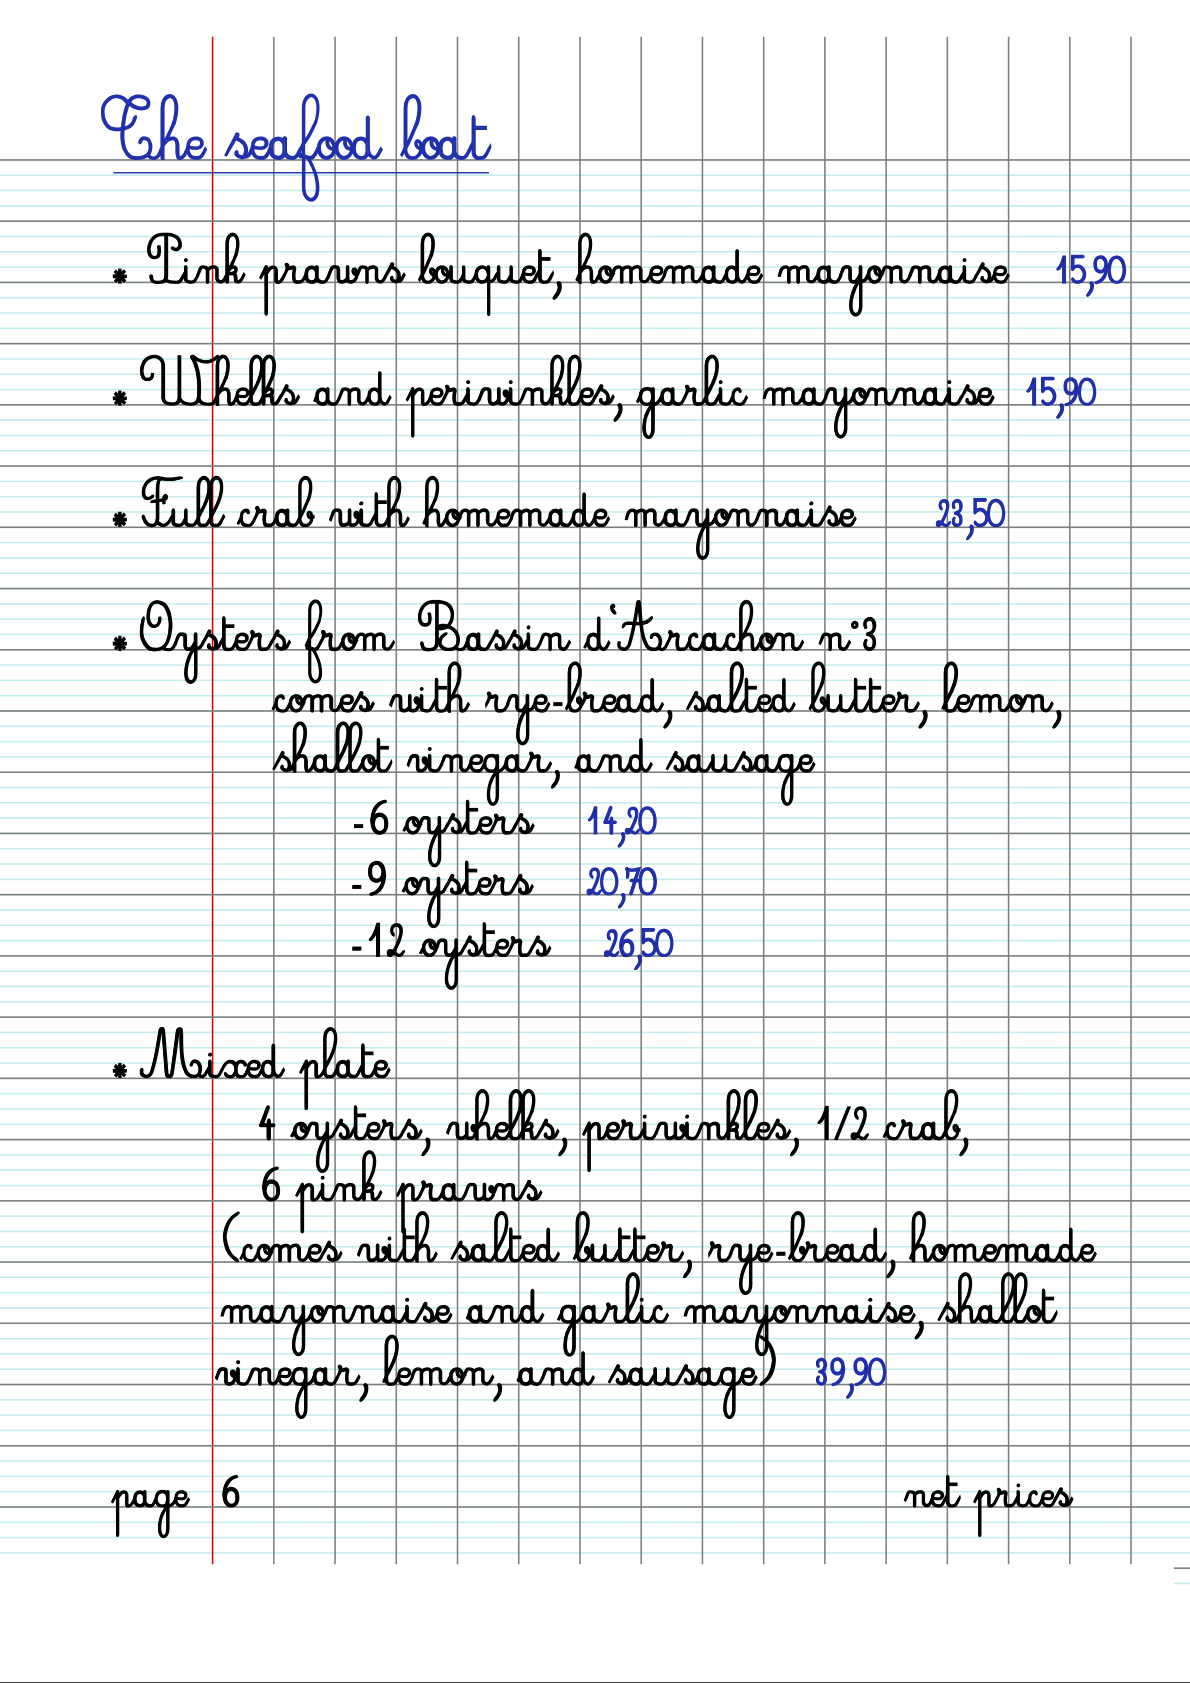 The seafood boat
* Pink prawns bouquet, homemade mayonnaise 15,90
* Whelks and periwinkles, garlic mayonnaise 15,90
* Full crab with homemade mayonnaise 23,50
* Oysters from Bassin d'Arcachon n°3
comes with rye-bread, salted butter, lemon,
shallot vinegar, and sausage
-6 oysters 14,20
-9 oysters 20,70
-12 oysters 26,50
* Mixed plate
4 oysters, whelks, periwinkles, 1/2 crab,
6 pink prawns
(comes with salted butter, rye-bread, homemade
mayonnaise and garlic mayonnaise, shallot
vinegar, lemon, and sausage) 39,90
page 6 net prices